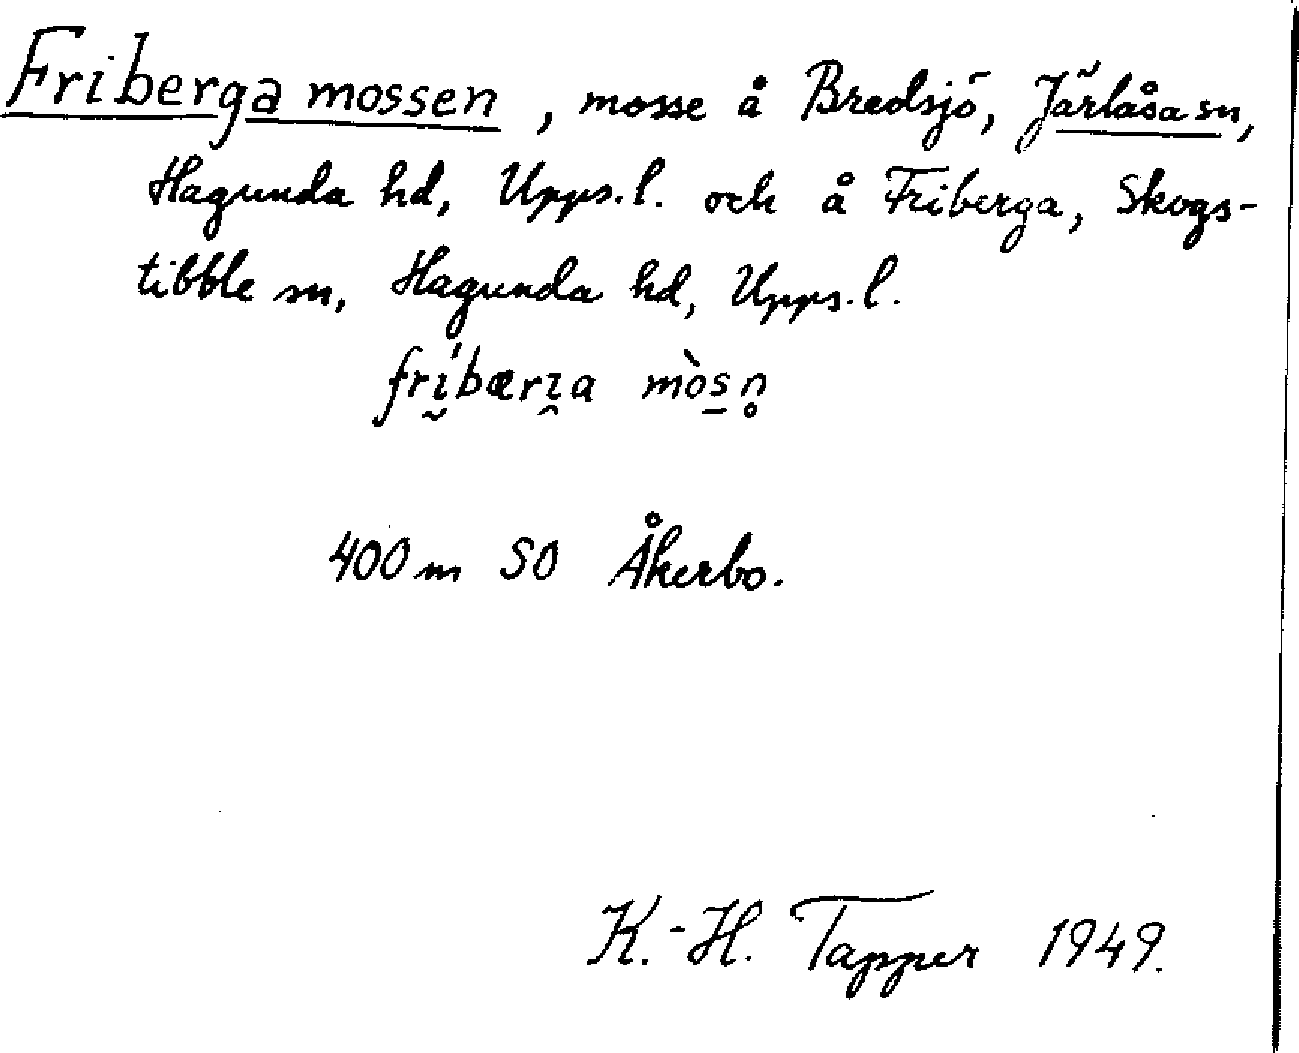 Friberga mossen, mosse å Bredsjö, Järlåsa sn,
Hagunda hd, Upps.l. och å Friberga, Skogs-
tibble sn, Hagunda hd, Upps.l.
frı̰́bærı̭a mòs̲n̥
400 m SO Åkerbo.
K.-H. Tapper 1949.